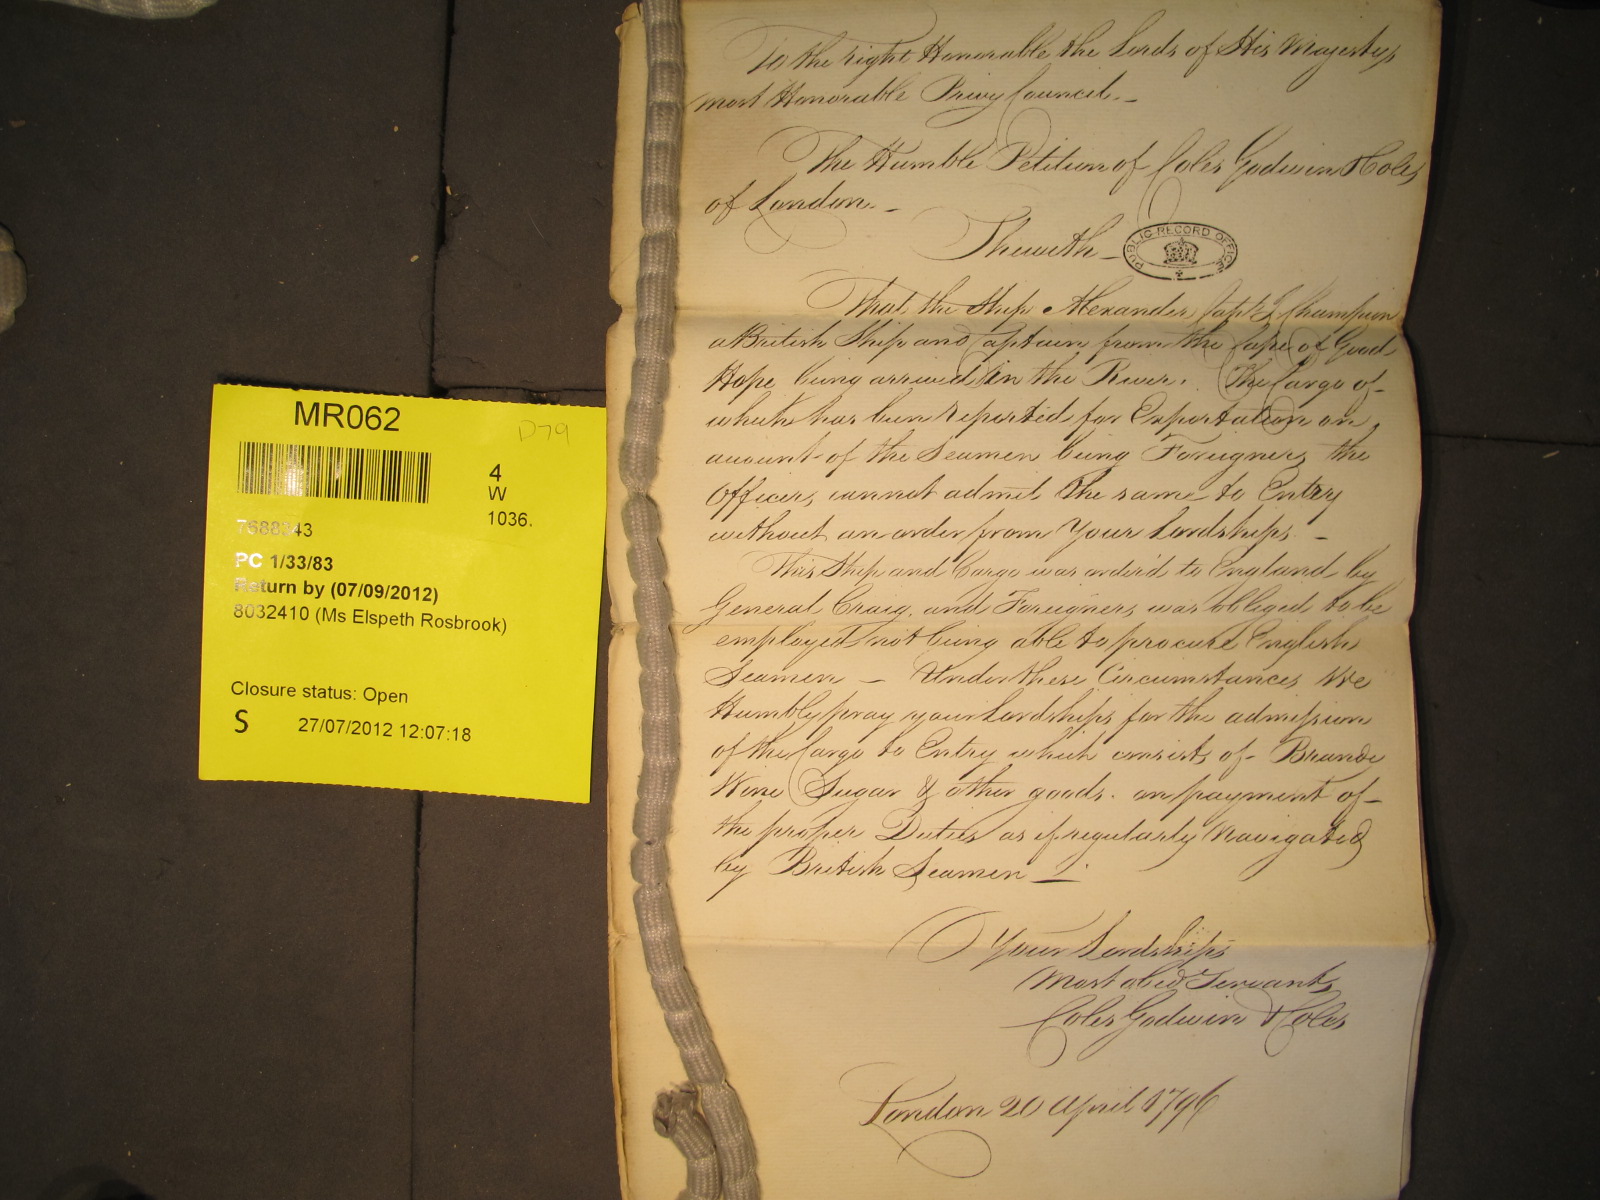 MR062
D79
4
W
1036.
7688343
PC 1/33/83
Return by (07/09/2012)
8032410 (Ms Elspeth Rosbrook)
Closure status: Open
S 27/07/2012 12:07:18
To the right Honorable the Lords of His Majestys
most Honorable Privy Council. -
The Humble Petition of Coles Godwin & Coles
of London. -
Sheweth -
PUBLIC RECORD OFFICE
That the Ship Alexander Capt. Champion
a British Ship and Captain from the Cape of Good
Hope being arrived in the River. The Cargo of
which has been reported for Exportation on
account of the Seamen being Foreigners the
Officers cannot admit the same to Entry
without an order from Your Lordships -
This Ship and Cargo was orderd to England by
General Craig, and Foreigners was obliged to be
employed not being able to procure English
Seamen - Under these Circumstances We
Humbly pray your Lordships for the admission
of the Cargo to Entry which consists of Brande
Wine Sugar & other goods. on payment of
the proper Duties as if regularly Navigated
by British Seamen -
Your Lordships
Most obed Servants
Coles Godwin & Coles
London 20 April 1796